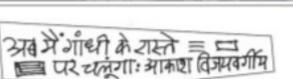 अब मैं गांधी के रास्ते
पर चलूंगाः आकाश विजयवर्गीय